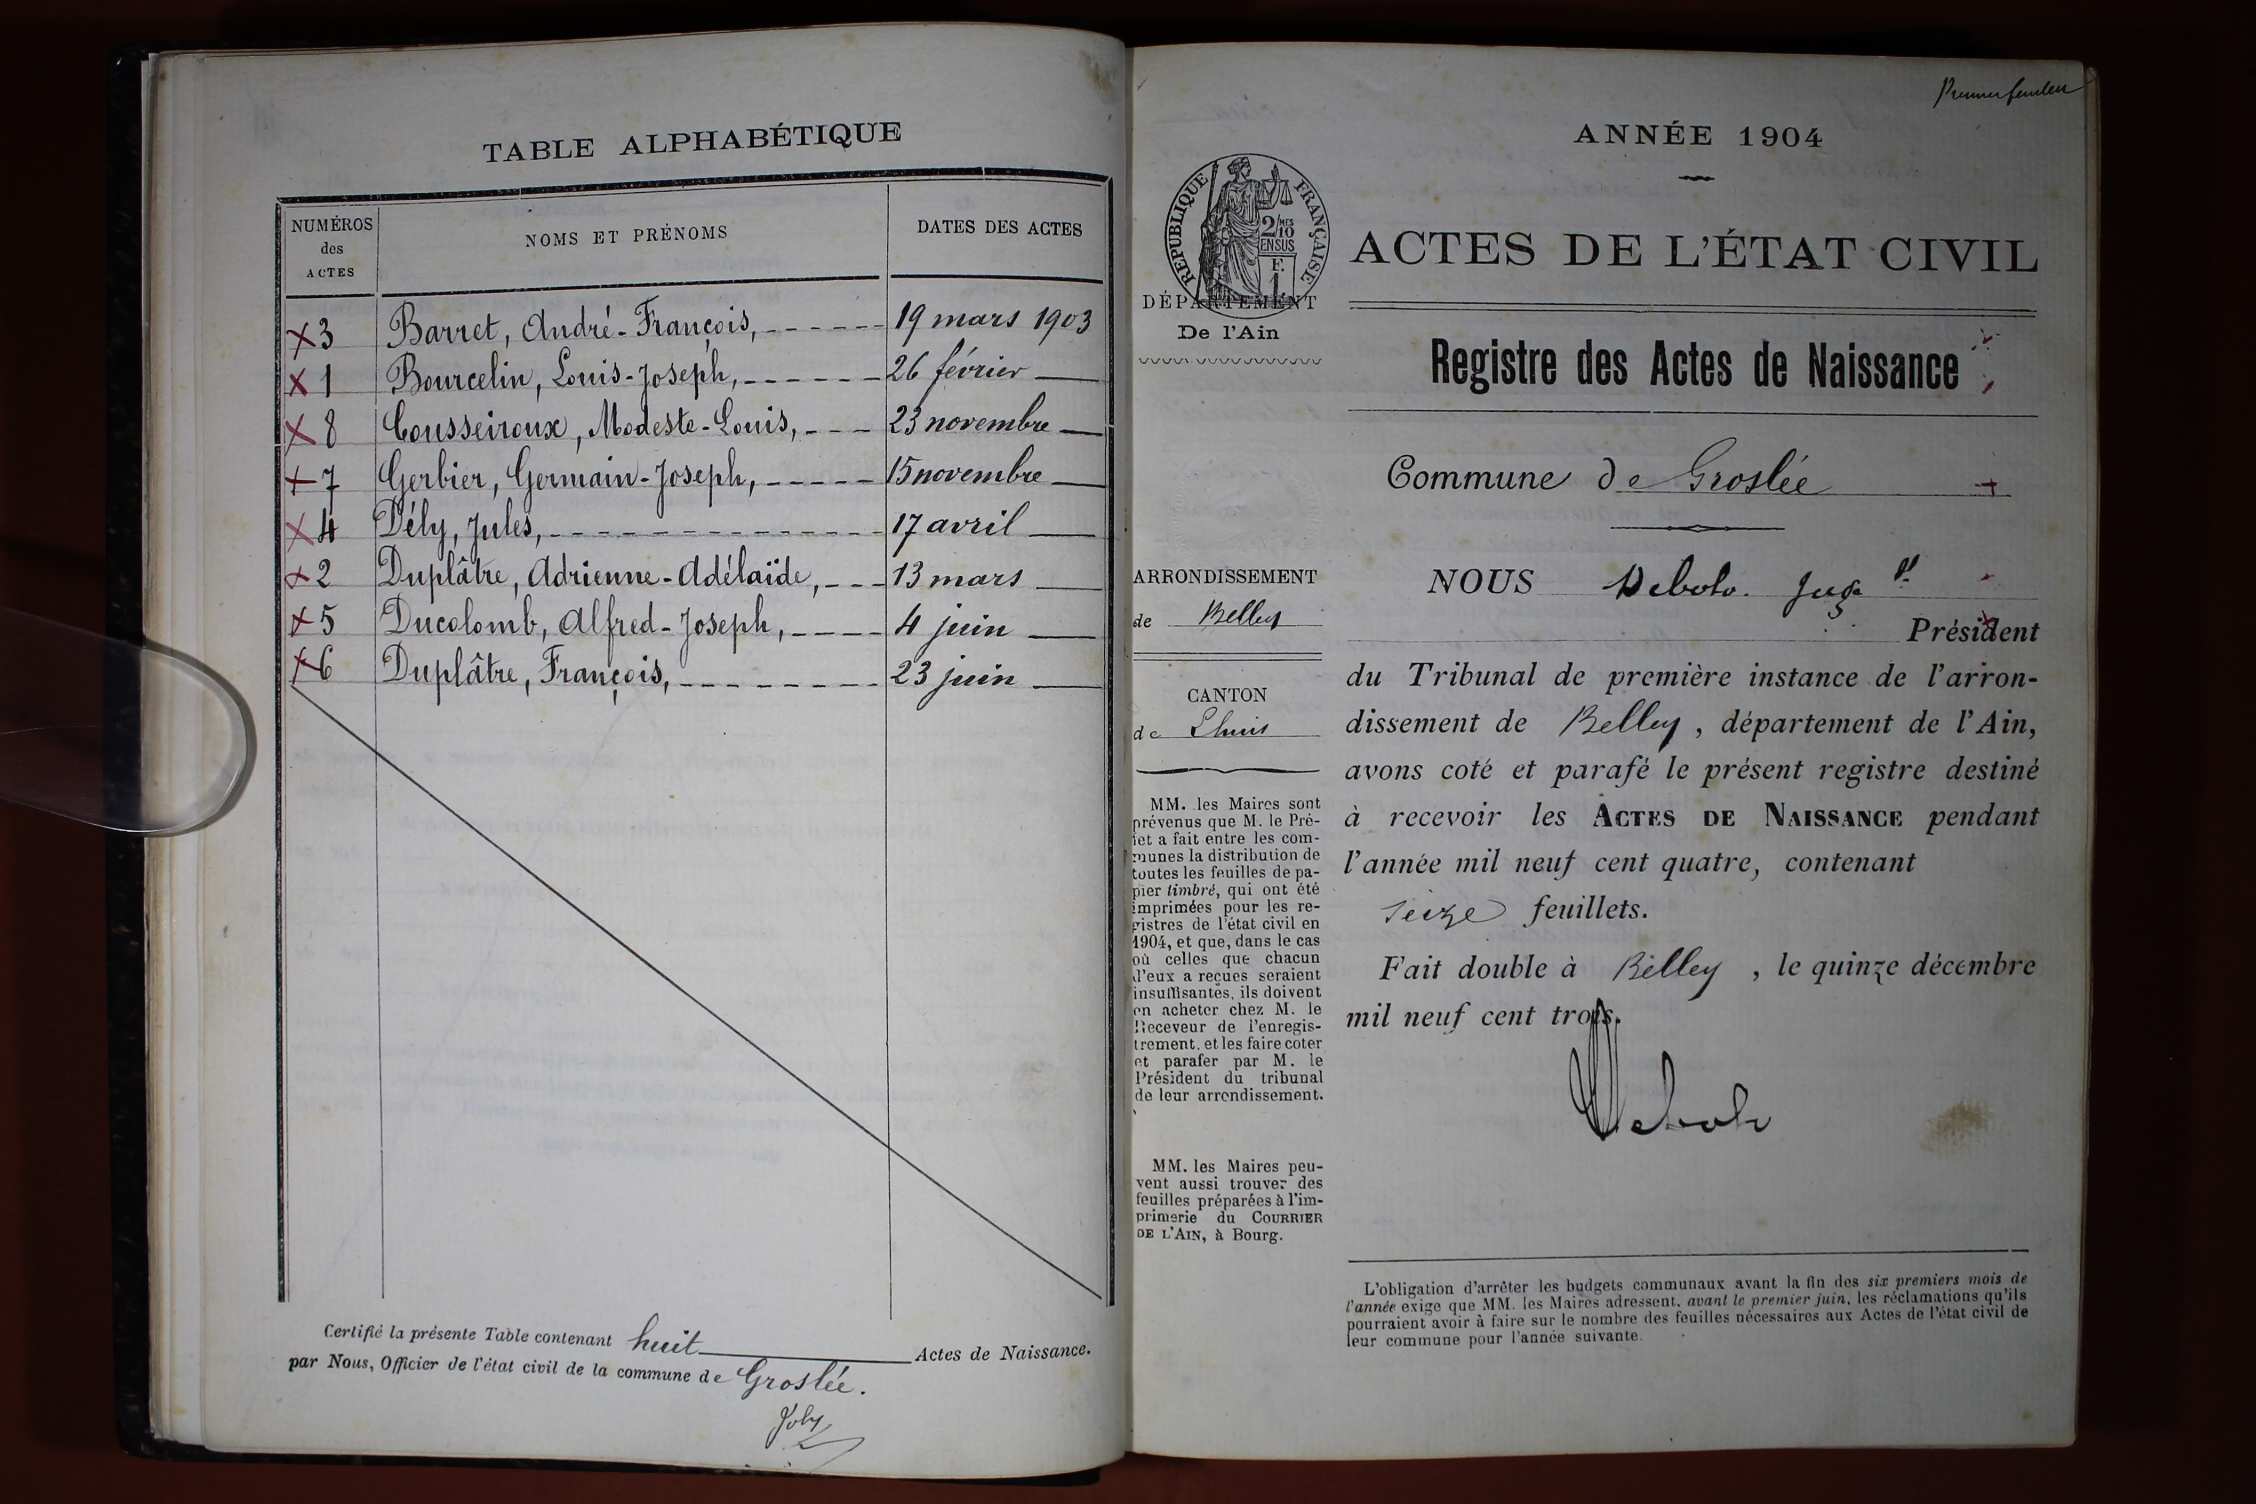 TABLE ALPHABÉTIQUE
NUMÉROS des ACTES NOMS ET PRÉNOMS DATES DES ACTES
3 Barret, André-François, 19 mars 1903
1 Bourcelin, Louis-Joseph, 26 février
8 Cousseiroux, Modeste-Louis, 23 novembre
7 Gerbier, Germain-Joseph, 15 novembre
4 Dély, Jules, 17 avril
2 Duplâtre, Adrienne-Adélaïde, 13 mars
5 Ducolomb, Alfred-Joseph, 4 juin
6 Duplâtre, François, 23 juin
Certifié la présente Table contenant huit Actes de Naissance.
par Nous, Officier de l'état civil de la commune de Groslée.
Joly
Premier feuillet
ANNÉE 1904
RÉPUBLIQUE FRANÇAISE
2/MES
10
EN SUS
F.
1.
DÉPARTEMENT
De l'Ain
ARRONDISSEMENT
de Belley
CANTON
de Lhuis
MM. les Maires sont
prévenus que M. le Pré-
fet a fait entre les com-
munes la distribution de
toutes les feuilles de pa-
pier timbré, qui ont été
imprimées pour les re-
gistres de l'état civil en
1904, et que, dans le cas
où celles que chacun
d'eux a reçues seraient
insuffisantes, ils doivent
en acheter chez M. le
Receveur de l'enregis-
trement, et les faire coter
et parafer par M. le
Président du tribunal
de leur arrondissement.
MM. les Maires peu-
vent aussi trouver des
feuilles préparées à l'im-
primerie du COURRIER
DE L'AIN, à Bourg.
ACTES DE L'ÉTAT CIVIL
Registre des Actes de Naissance
Commune de Groslée
NOUS Juge
Président
du Tribunal de première instance de l'arron-
dissement de Belley, département de l'Ain,
avons coté et parafé le présent registre destiné
à recevoir les ACTES DE NAISSANCE pendant
l'année mil neuf cent quatre, contenant
seize feuillets.
Fait double à Belley, le quinze décembre
mil neuf cent trois.
L'obligation d'arrêter les budgets communaux avant la fin des six premiers mois de
l'année exige que MM. les Maires adressent, avant le premier juin, les réclamations qu'ils
pourraient avoir à faire sur le nombre des feuilles nécessaires aux Actes de l'état civil de
leur commune pour l'année suivante.